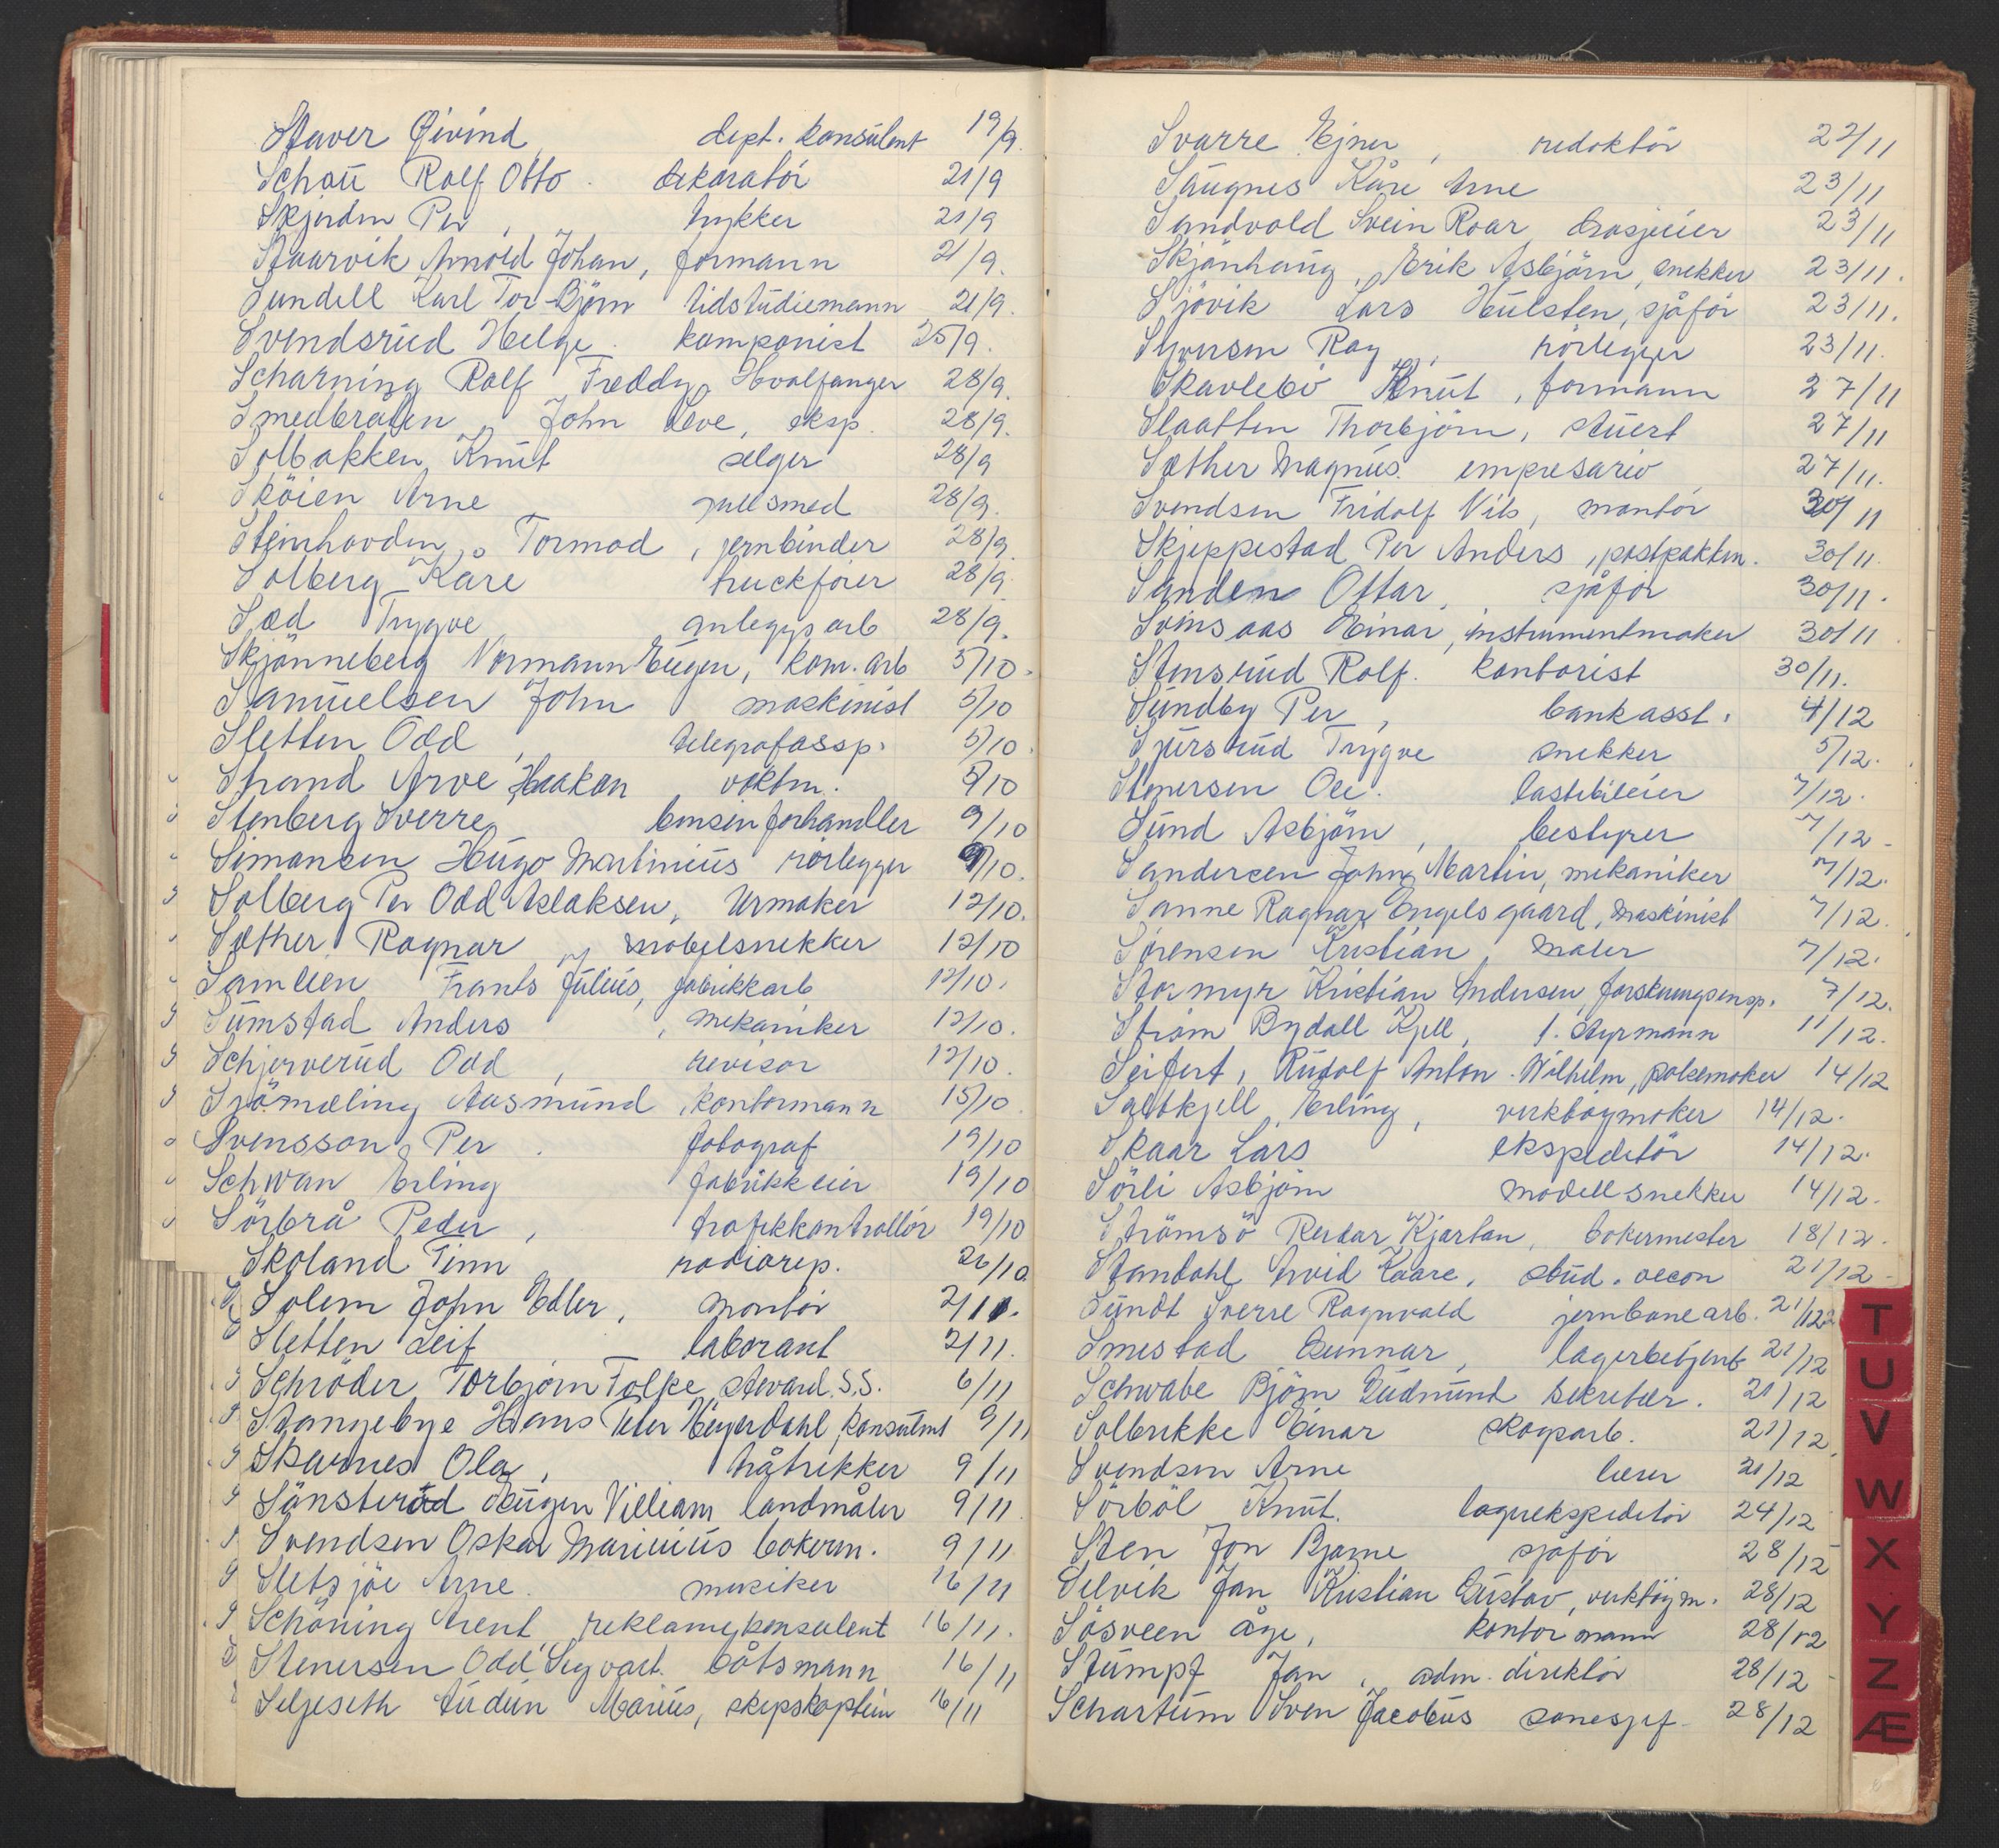 Staver Øivind dept. konsulent 19/9
Schau Rolf Otto dekoratör 21/9
Skjerden Per, trykker 21/9
Staarvik Arnold Johan, formann 21/9.
Sundell Karl Tor-Björn tidstudiemann 21/9.
Svendsrud Helge. komponist 25/9.
Scharning Rolf Freddy Hvalfanger 28/9.
Smedbråten, John Leve, eksp. 28/9.
Solbakken Knut selger 28/9
Sköien Arne gullsmed 28/9.
Steinhovden, Tormod, jernbinder 28/9
Solberg Kåre truckförer 28/9.
Sæd Trygve anleggsarb 28/9.
Skjönneberg Normann Eugen, kom. arb 5/10.
Samuelsen John maskinist 5/10
Sletten Odd, telegrafassp. 5/10.
Strand Arve Haakon vaktm. 5/10
Stenberg Sverre bensinforhandler 9/10
Simonsen Hugo Martinius rörlegger 9/10.
Solberg Per Odd Aslaksen, Urmaker 12/10.
Sæther Ragnar, möbelsnekker 12/10
Samuen Frants Julius, fabrikkarb 12/10.
Sumstad Anders, mekaniker 12/10.
Schjerverud Odd, revisor 12/10.
Aasmund, kontormann 15/10
Svensson Per. fotograf 19/10
Schwan Erling fabrikkeier 19/10
Sörbrå Peder, trafikkontrollör 19/10
Skoland Finn radiorep. 26/10.
Solem John Edler, montör 2/11.
Sletten Leif laborant 2/11.
Schröder Torbjörn Folke, steward. S.S. 6/11
Stangebye Hans Peter Heyerdahl, konsulent 9/11
Skarnes Ola, håtrekker 9/11
Sönsterud Eugen Villiam landmåler 9/11
Svendsen Oskar Marinius bokerm. 9/11
Sletsjöe Arne. musiker 16/11
Schöning Arent reklamekonsulent 16/11.
Stenersen Odd Sigvart. båtsmann 16/11
Seljeseth Audun Marius, skipskaptein 16/11
Svarre Ejner, redaktör 22/11
Saugnes Kåre Arne 23/11
Sandvold Svein Roar drosjeeier 23/11
Skjönhaug, Erik Asbjörn, snekker 23/11.
Sjövik Lars Hulsten, sjåför 23/11.
Syversen Ray, rörlegger 23/11.
Skavlebö Knut, formann 27/11
Slaatten Thorbjörn, stuert 27/11
Sæther Magnus. empresario 27/11.
Svendsen Fridolf Nils, montör 30/11
Skjeppestad Per Anders, postpakkm. 30/11.
Sanden Ottar, sjåför 30/11.
Svinsaas Einar, instrumentmaker 30/11
Stensrud Rolf. kontorist 30/11.
Sundby Per, bankasst. 4/12
Sjursrud Trygve snekker 5/12.
Stenersen Ole. lastebileier 7/12.
Sund Asbjörn, bestyrer 7/12
Sandersen John Martin, mekaniker 7/12.
Sanne Ragnar Engelsgaard, maskinist 7/12.
Sörensen Kristian, maler 7/12.
Stormyr Kristian Andersen forskningsinsp. 7/12.
Ström Bydall Kjell, 1. styrmann 11/12.
Seifert, Rudolf Anton. Wilhelm, polsemaker 14/12
Saltkjell, Erling, verktöymaker 14/12.
Skaar Lars ekspeditör 14/12.
Sörli Asbjörn modellsnekker 14/12.
Strömsö Reidar Kjartan, bokermester 18/12.
Standahl Arvid Kaare, stud. oecon 21/12
Sundt Sverre Ragnvald jernbanearb. 21/12
Smestad Gunnar, lagerbetjent 21/12
Schwabe Björn Gudmund sekretær. 21/12
Solbrekke Einar skogsarb. 21/12
Svendsen Arne lærer 21/12
Sörböl Knut. lagerekspeditör 24/12
Sten Jon Bjarne sjåför 28/12
Selvik Jan Kristian Gustav, verktöym. 28/12
Sösveen Åge, kontormann 28/12
Stumpf Jan, adm. direktör 28/12
Schartum Sven Jacobus sonesjef 28/12
T
U
V
W
X
Y
Z
Æ